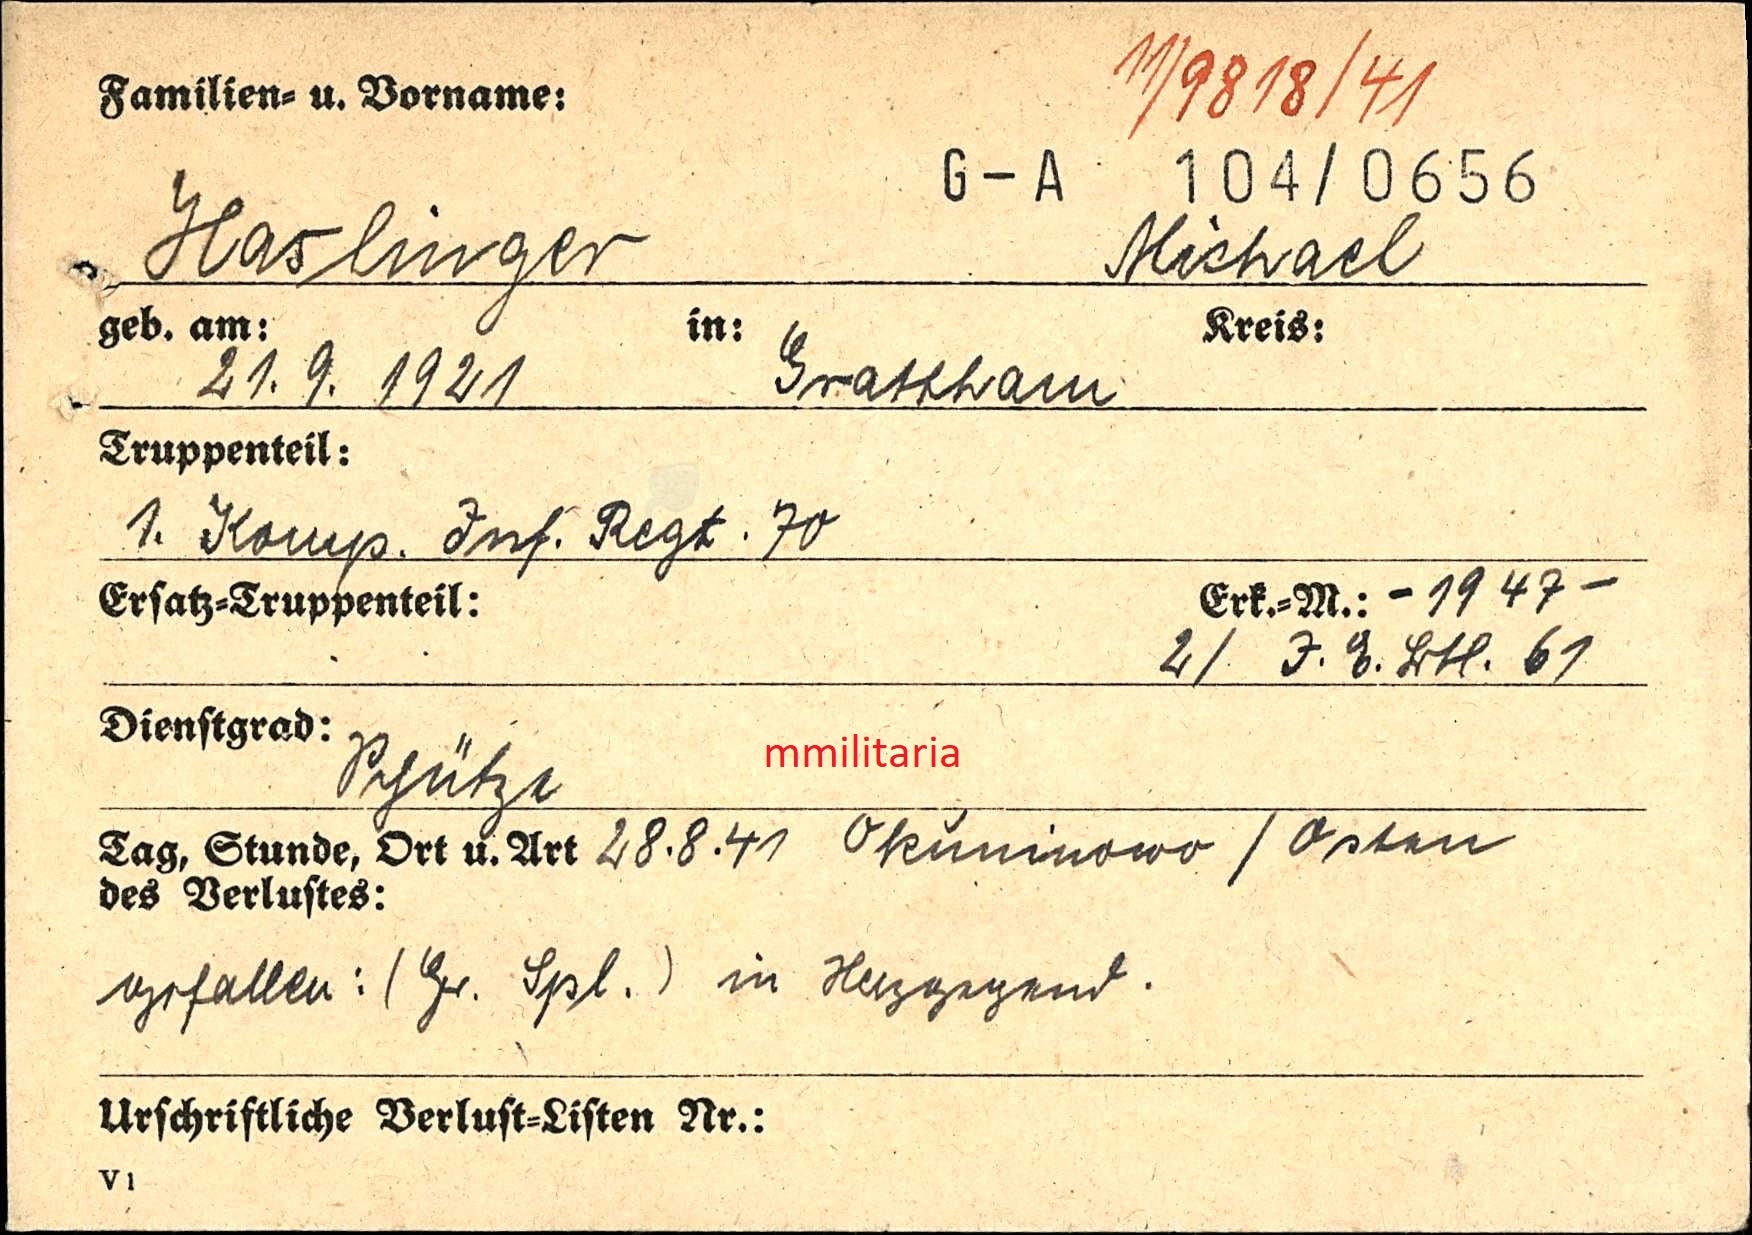 11/9818/41
Familien- u. Vorname:
G-A 104/0656
Haslinger Michael
geb. am: in: Kreis:
21. 9. 1921 Gratkham
Truppenteil:
1. Komp. Inf. Regt. 70
Ersatz-Truppenteil: Erk.-M.: - 1947 -
2/ J. E. Btl. 61
Dienstgrad:
Schütze
mmilitaria
Tag, Stunde, Ort u. Art 28.8.41 Okuninowo / Osten
des Verlustes:
gefallen: (Gr. Spl.) in Herzgegend.
Urschriftliche Verlust-Listen Nr.:
V 1